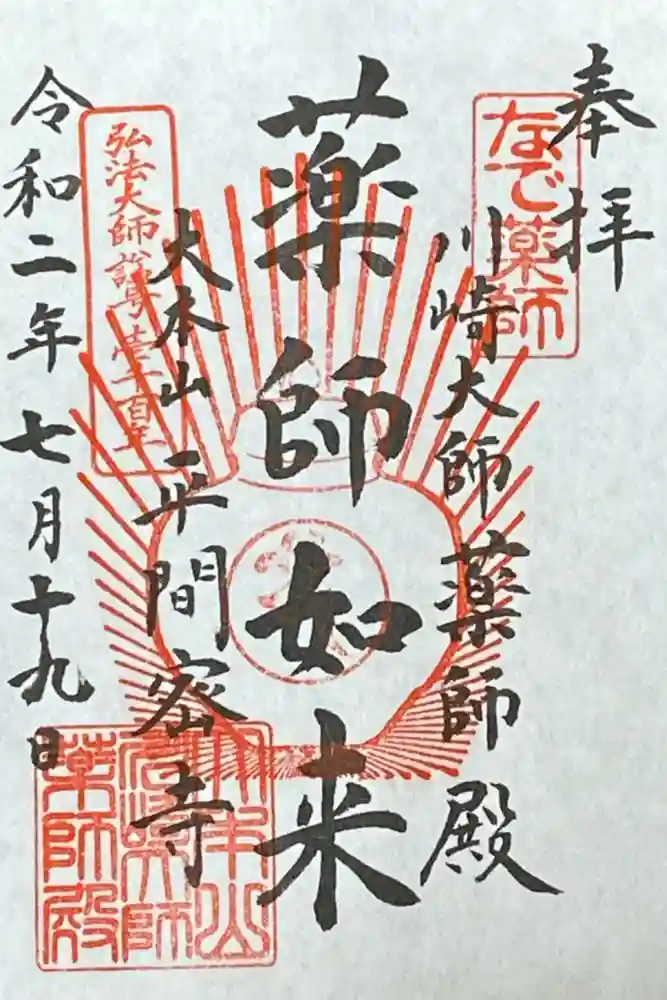 奉拝
なで薬師
川崎大師薬師殿
薬師如来
大本山平間密寺
弘法大師誕生壱千二百年
令和二年七月十九日
大本山
川崎大師
薬師殿